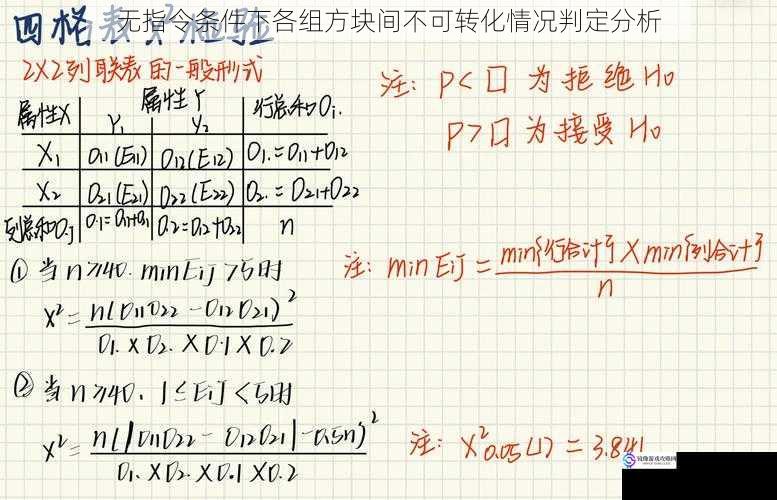 无指令条件下各组方块间不可转化情况判定分析
四格表X²检验
2X2列联表的一般形式
属性X 属性Y 行总和Oi.
Y₁ Y₂
X₁ O₁₁(E₁₁) O₁₂(E₁₂) O₁.=O₁₁+O₁₂
X₂ O₂₁(E₂₁) O₂₂(E₂₂) O₂.=O₂₁+O₂₂
列总和O.j O.1=O₁₁+O₂₁ O.2=O₁₂+O₂₂ n
注: P<口 为拒绝H₀
P>口为接受H₀
① 当n≥40. minEij>5时
X²= n(O₁₁O₂₂-O₁₂O₂₁)²
O₁.XO₂.XO.1XO.2
注: minEij= min{行合计}Xmin{列合计}
n
② 当n≥40. 1≤Eij<5时
X²= n(|O₁₁O₂₂-O₁₂O₂₁|-0.5n)²
O₁.XO₂.XO.1XO.2
注: X²0.05(1)=3.841